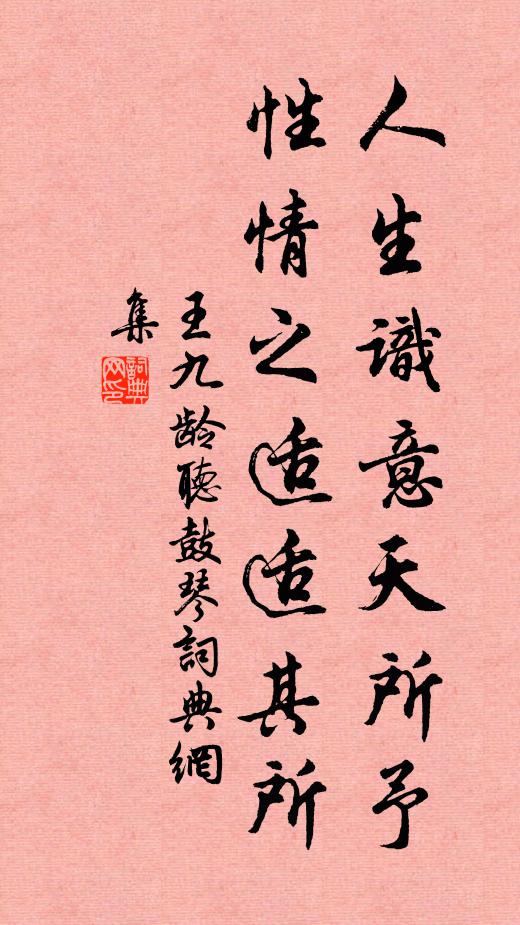 人生識意天所予
性情之适适其所
王九龄聽鼓琴詞典網
集
詞典
网印